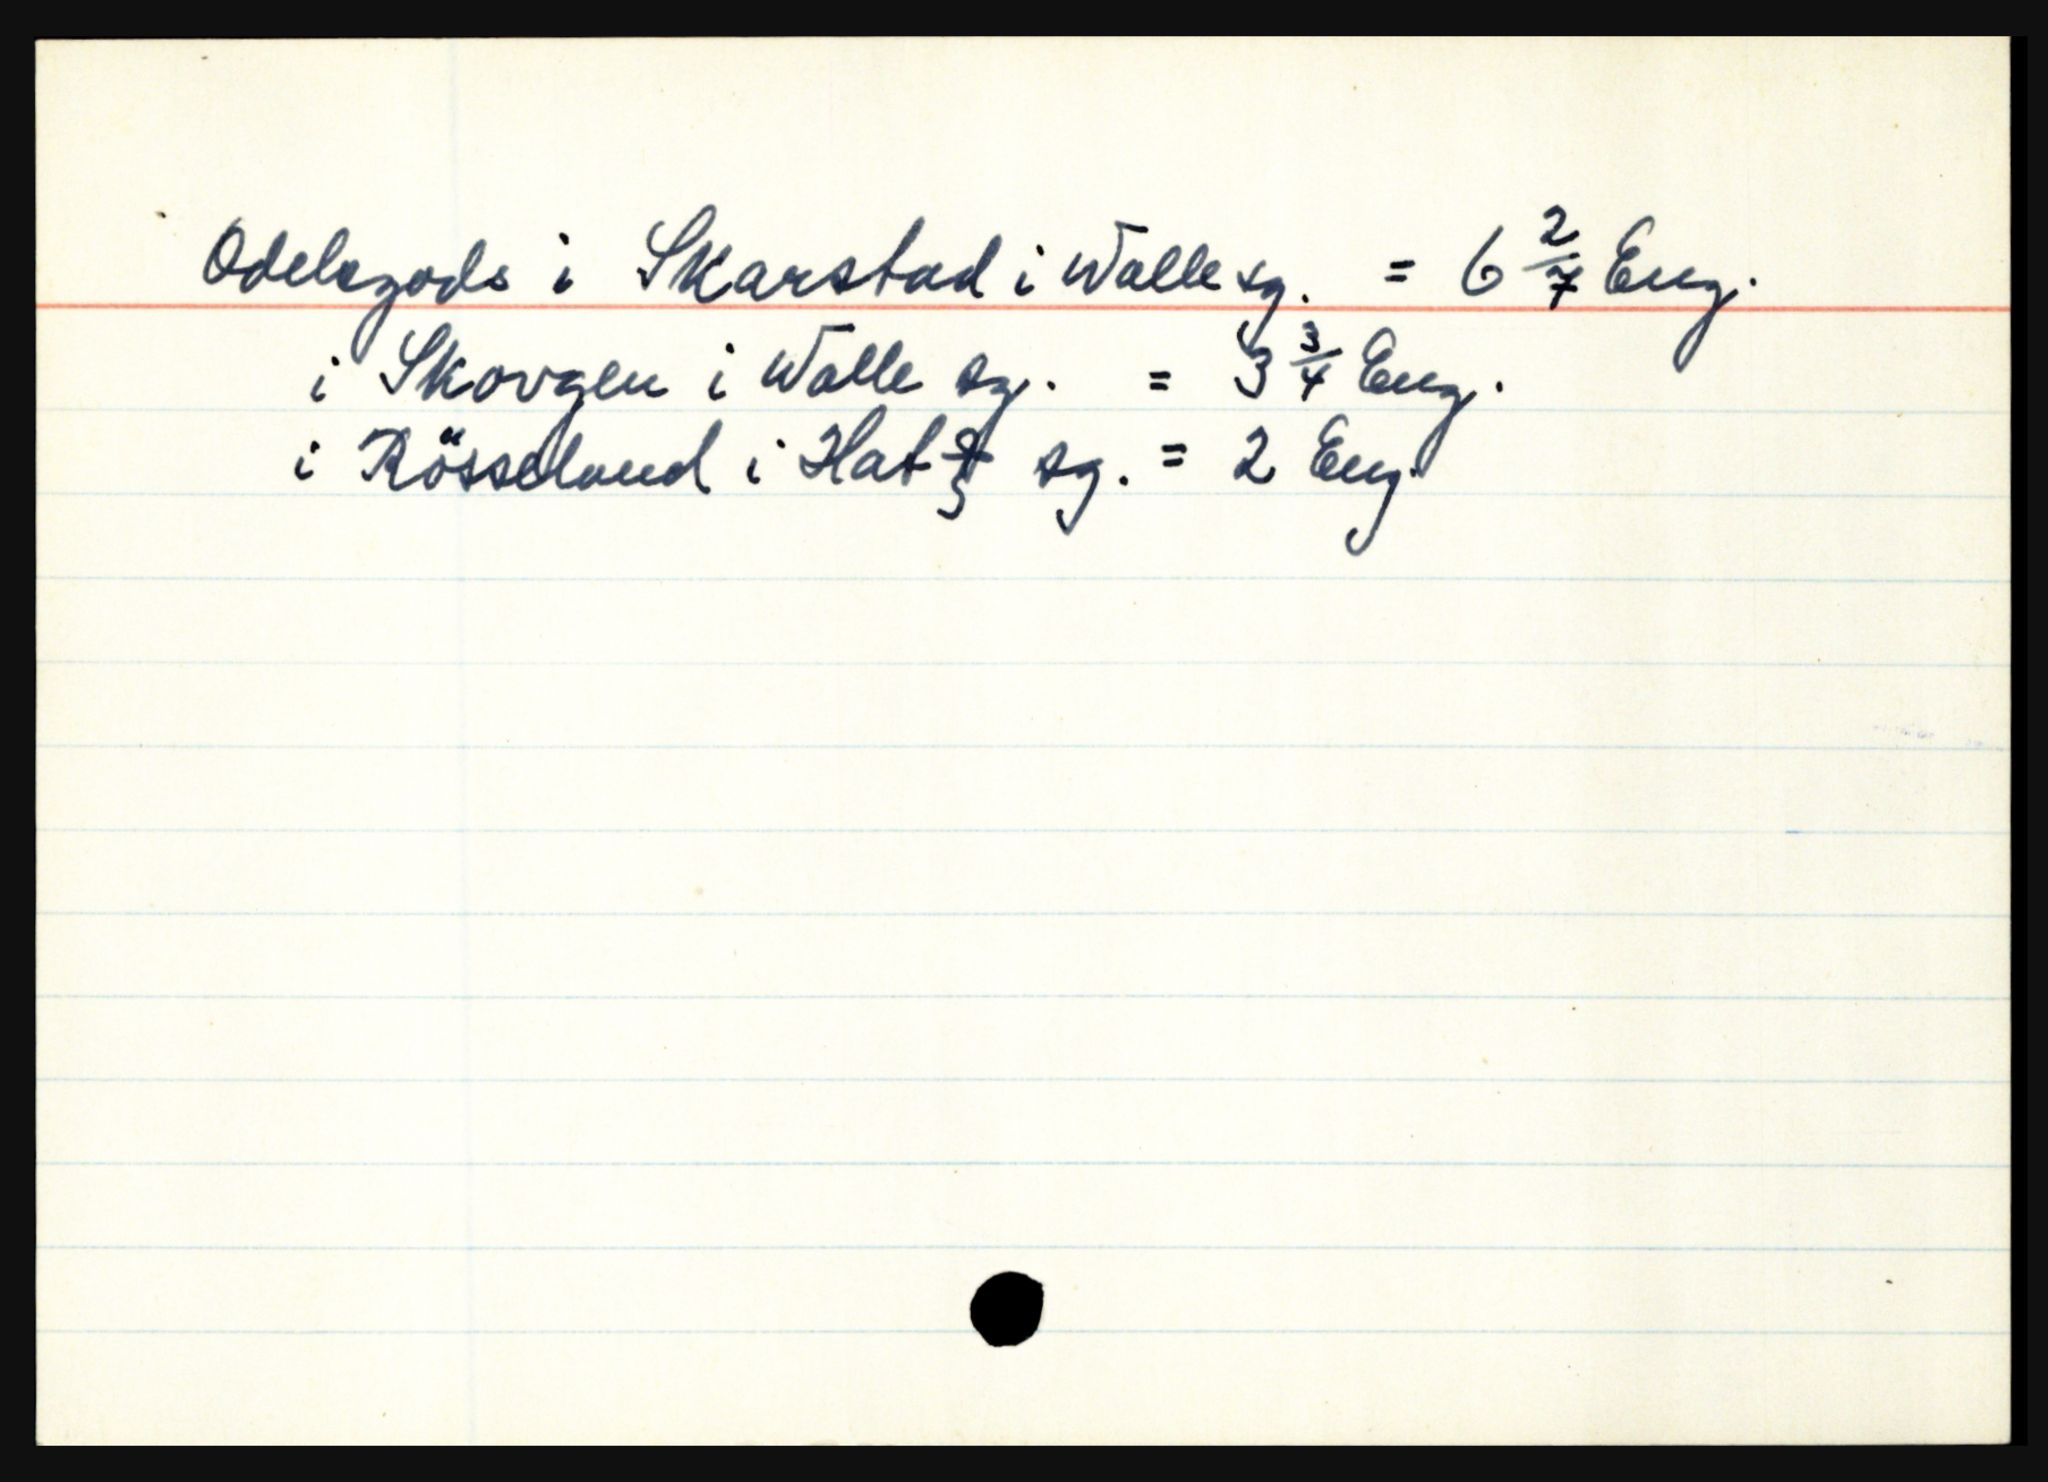 Odelsgods i Skarstad i Walle sg. = 6 2/7 Eng.
i Skovgen i Walle sg. = 3 3/4 Eng.
i Rösseland i sg. = 2 Eng.